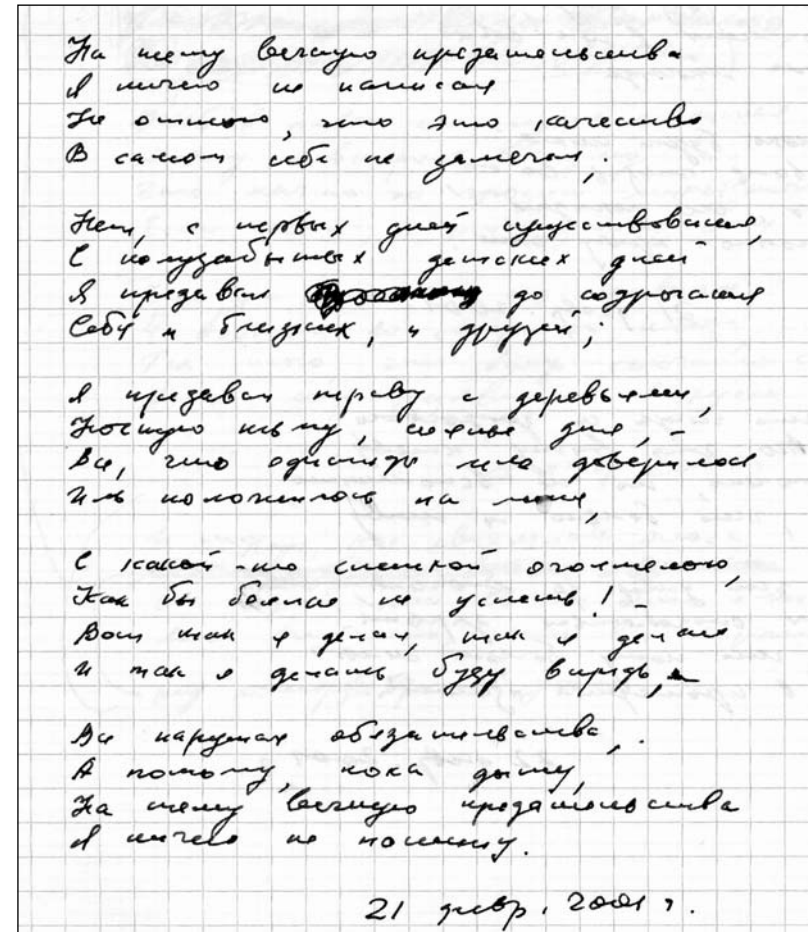 На тему вечную предательства
Я ничего не написал
Не оттого, что это качество
В самом себе не замечал,
Нет, с первых дней существования,
С полузабытых детских дней
Я предавал до содрогания
Себя и близких, и друзей;
Я предавал траву с деревьями,
Ночную тьму, сиянье дня, –
Все, что однажды мне доверилось
Иль положилось на меня,
С какой-то спешкой оголтелою,
Как бы боялся не успеть! –
Вот так я делал, так я делаю
И так я делать буду впредь, –
Все нарушая обязательства,
А потому, пока дышу,
На тему вечную предательства
Я ничего не напишу.
21 февр. 2001 г.